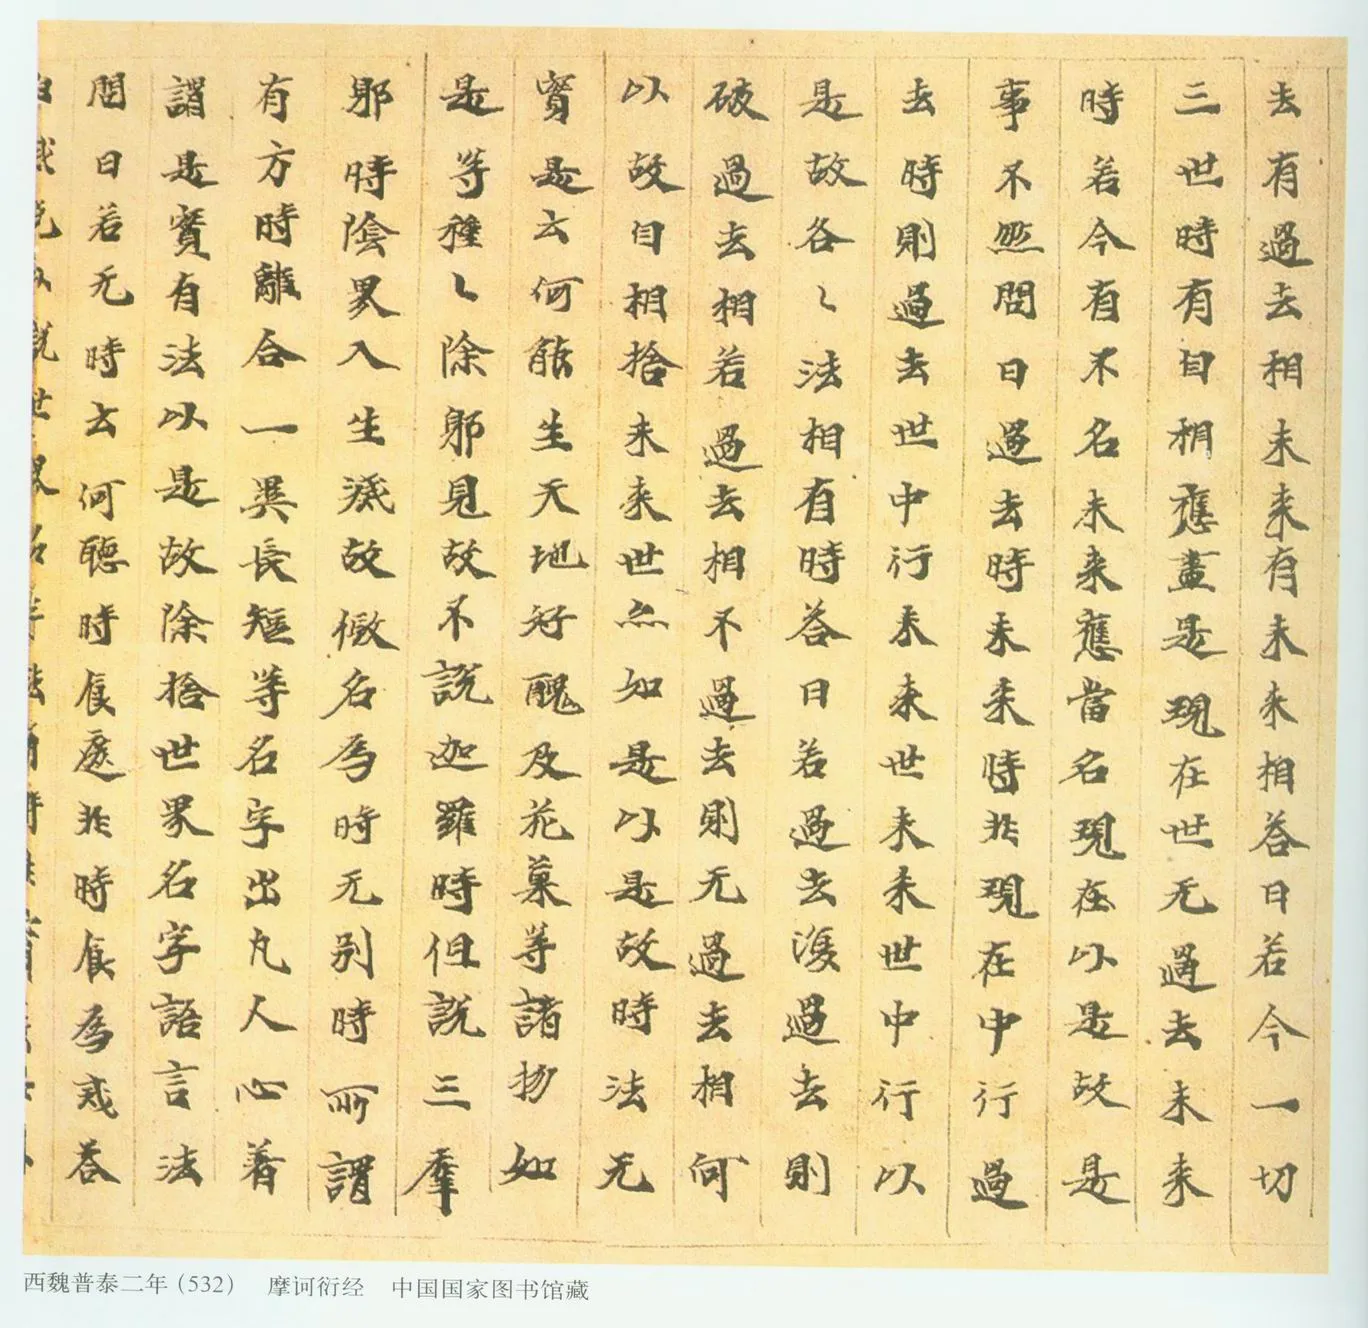 去有過去相未来有未来相荅曰若今一切
三世時有自相應盡是現在世无過去未来
時若今有不名未来應當名現在以是故是
事不然問曰過去時未来時非現在中行過
去時則過去世中行未来世未来世中行以
是故各〻法相有時荅曰若過去復過去則
破過去相若過去相不過去則无過去相何
以故自相捨未来世亦如是以是故時法无
實是云何能生天地好醜及花菓等諸物如
是等種〻除邪見故不說迦羅時但說三摩
耶時陰界入生滅故假名為時无別時所謂
有方時離合一異長短等名字出凡人心著
謂是實有法以是故除捨世界名字語言法
問曰若无時云何聽時食遮非時食為戒荅
曰我先已說世界名字法有時非實法
西魏普泰二年（532） 摩诃衍经 中国国家图书馆藏